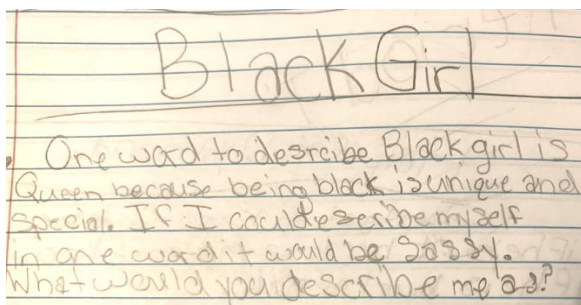 Black Girl
One word to desrcibe Black girl is
Queen because being black is unique and
special. If I could escribe myself
in one word it would be Sassy.
What would you describe me as?